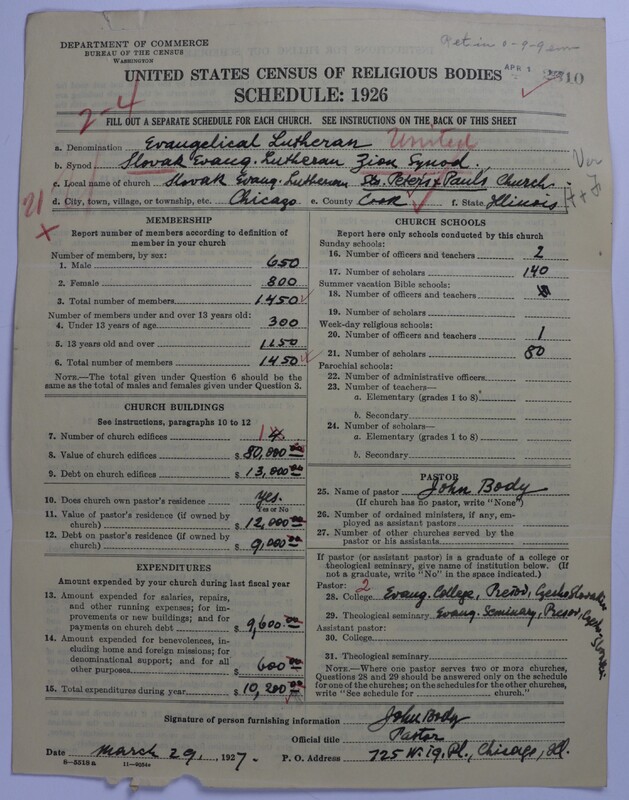 Ret in 0-9-9 sm
DEPARTMENT OF COMMERCE
BUREAU OF THE CENSUS
WASHINGTON
APR 1
10
UNITED STATES CENSUS OF RELIGIOUS BODIES
SCHEDULE: 1926
2-4
FILL OUT A SEPARATE SCHEDULE FOR EACH CHURCH. SEE INSTRUCTIONS ON THE BACK OF THIS SHEET
a. Denomination Evangelical Lutheran United
b. Synod Slovak Evang. Lutheran Zion Synod.
c. Local name of church Slovak Evang. Lutheran Sts. Peter's & Paul's Church.
d. City, town, village, or township, etc. Chicago e. County Cook f. State Illinois
21
x
MEMBERSHIP
Report number of members according to definition of
member in your church
Number of members, by sex:
1. Male 650
2. Female 800
3. Total number of members 1450
Number of members under and over 13 years old:
4. Under 13 years of age 300
5. 13 years old and over 1150
6. Total number of members 1450
NOTE.—The total given under Question 6 should be the
same as the total of males and females given under Question 3.
CHURCH BUILDINGS
See instructions, paragraphs 10 to 12
7. Number of church edifices 1 4
8. Value of church edifices $ 80,000 00
9. Debt on church edifices $ 13,000 00
10. Does church own pastor's residence Yes.
Yes or No
11. Value of pastor's residence (if owned by
church) $ 12,000 00
12. Debt on pastor's residence (if owned by
church) $ 9,000 00
EXPENDITURES
Amount expended by your church during last fiscal year
13. Amount expended for salaries, repairs,
and other running expenses; for im-
provements or new buildings; and for
payments on church debt $ 9,600 00
14. Amount expended for benevolences, in-
cluding home and foreign missions; for
denominational support; and for all
other purposes $ 600 00
15. Total expenditures during year $ 10,200 00
CHURCH SCHOOLS
Report here only schools conducted by this church
Sunday schools:
16. Number of officers and teachers 2
17. Number of scholars 140
Summer vacation Bible schools:
18. Number of officers and teachers
19. Number of scholars
Week-day religious schools:
20. Number of officers and teachers 1
21. Number of scholars 80
Parochial schools:
22. Number of administrative officers
23. Number of teachers—
a. Elementary (grades 1 to 8)
b. Secondary
24. Number of scholars—
a. Elementary (grades 1 to 8)
b. Secondary
PASTOR
25. Name of pastor John Body
(If church has no pastor, write "None")
26. Number of ordained ministers, if any, em-
ployed as assistant pastors
27. Number of other churches served by the
pastor or his assistants
If pastor (or assistant pastor) is a graduate of a college or
theological seminary, give name of institution below. (If
not a graduate, write "No" in the space indicated.)
Pastor: 2
28. College Evang. College, Presov, Czechoslovakia
29. Theological seminary Evang. Seminary, Presov, Czecho-Slovakia
Assistant pastor:
30. College
31. Theological seminary
NOTE.—Where one pastor serves two or more churches,
Questions 28 and 29 should be answered only on the schedule
for one of the churches; on the schedules for the other churches,
write "See schedule for church."
Signature of person furnishing information John Body
Official title Pastor
Date March 29, 1927. P. O. Address 725 W. 19. Pl., Chicago, Ill.
8-5518 a 11-9054